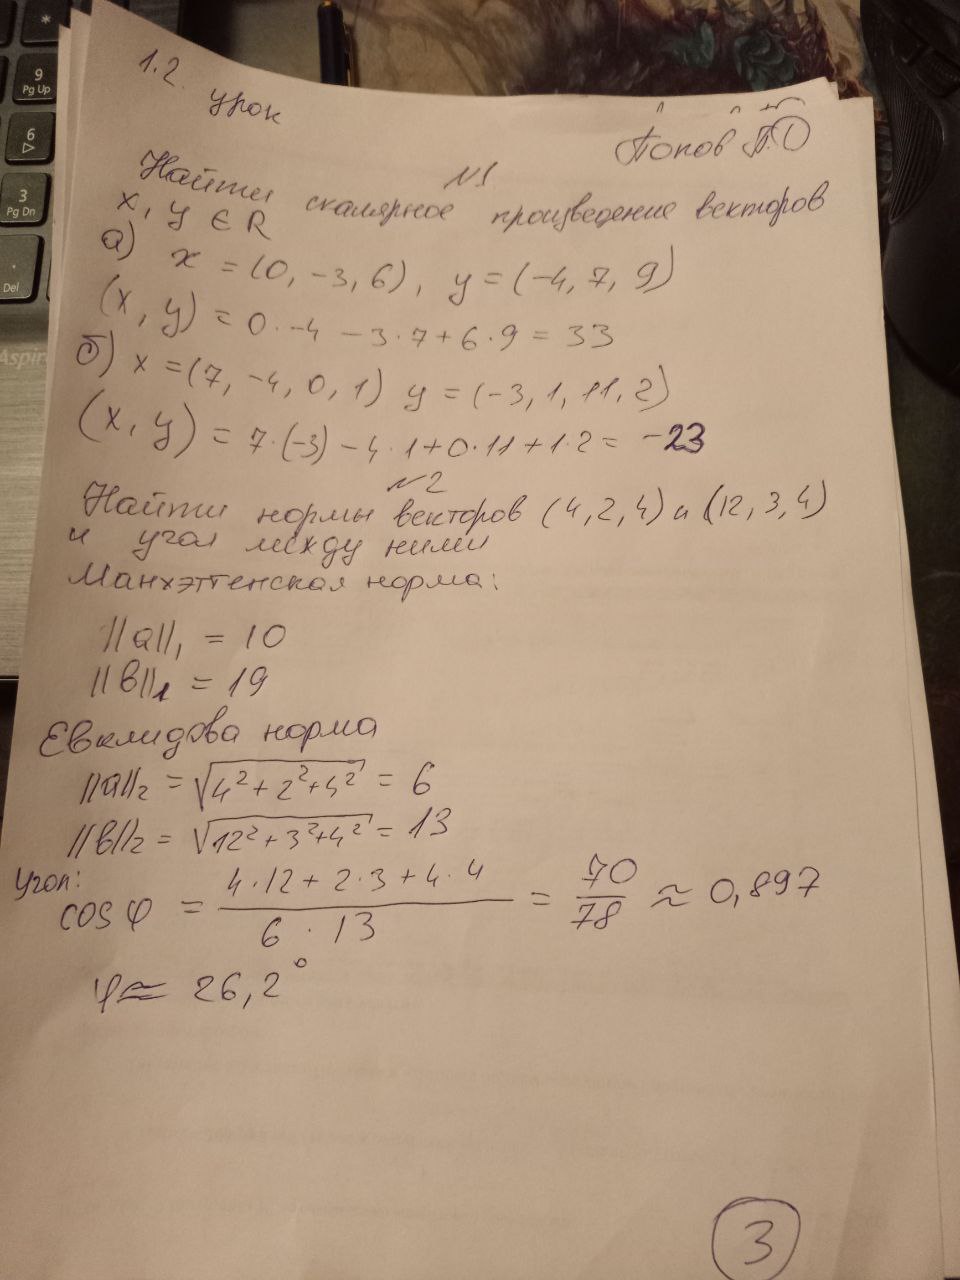 9
Pg Up
6
3
Pg Dn
Del
Aspir
1.2.
урок
Попов П.О
N1
Найти скалярное произведение векторов
x, y ∈ R
а) x = (0, -3, 6), y = (-4, 7, 9)
(x, y) = 0·-4 - 3·7 + 6·9 = 33
б) x = (7, -4, 0, 1) y = (-3, 1, 11, 2)
(x, y) = 7·(-3) - 4·1 + 0·11 + 1·2 = -23
N2
Найти нормы векторов (4, 2, 4) и (12, 3, 4)
и угол между ними
Манхэттенская норма:
||a||₁ = 10
||b||₁ = 19
Евклидова норма
||a||₂ = √4² + 2² + 4² = 6
||b||₂ = √12² + 3² + 4² = 13
Угол:
cos φ = (4·12 + 2·3 + 4·4)/(6·13) = 70/78 ≈ 0,897
φ ≈ 26,2°
3